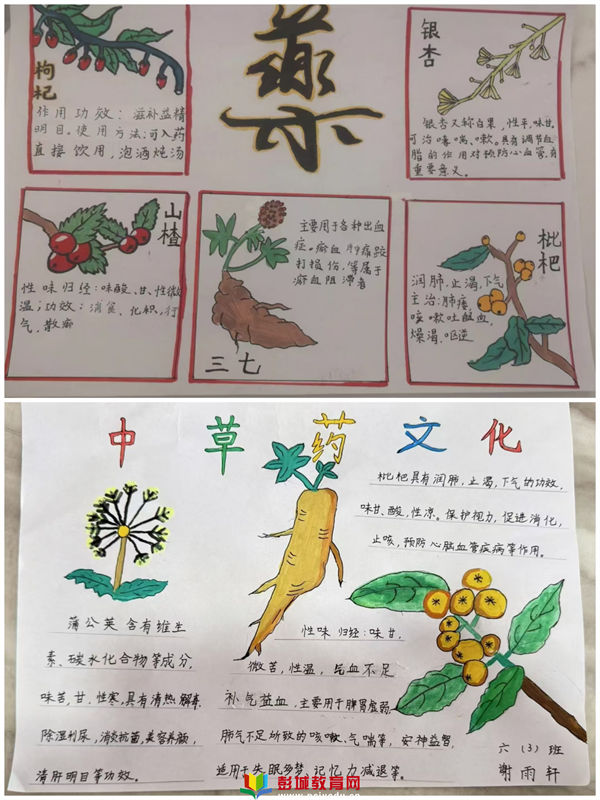 枸杞
作用功效：滋补益精
明目。使用方法：可入药
直接饮用，泡酒炖汤
藥
银杏
银杏又称白果，性平，味甘
可治哮喘、嗽。具有调节血
脂的作用对预防心血管，有
重要意义。
山楂
性味归经：味酸、甘、性微
温；功效：消食、化积、行
气，散瘀
主要用于各种出血
症。瘀血肿痛跌
打损伤，等属于
瘀血阻滞者
三七
枇杷
润肺，止渴，下气
主治：肺痿，
咳嗽吐血，
燥渴，呕逆
中草药文化
枇杷具有润肺，止渴，下气的功效，
味甘、酸，性凉。保护视力，促进消化，
止咳，预防心脑血管疾病等作用。
蒲公英含有维生
素、碳水化合物等成分，
味苦，甘，性寒，具有清热解毒
除湿利尿，消炎抗菌，美容养颜，
清肝明目等功效。
性味归经：味甘，
微苦，性温，气血不足
补气益血，主要用于脾胃虚弱，
肺气不足所致的咳嗽、气喘等，安神益智，
适用于失眠多梦、记忆力减退等。
六（3）班
谢雨轩
彭城教育网